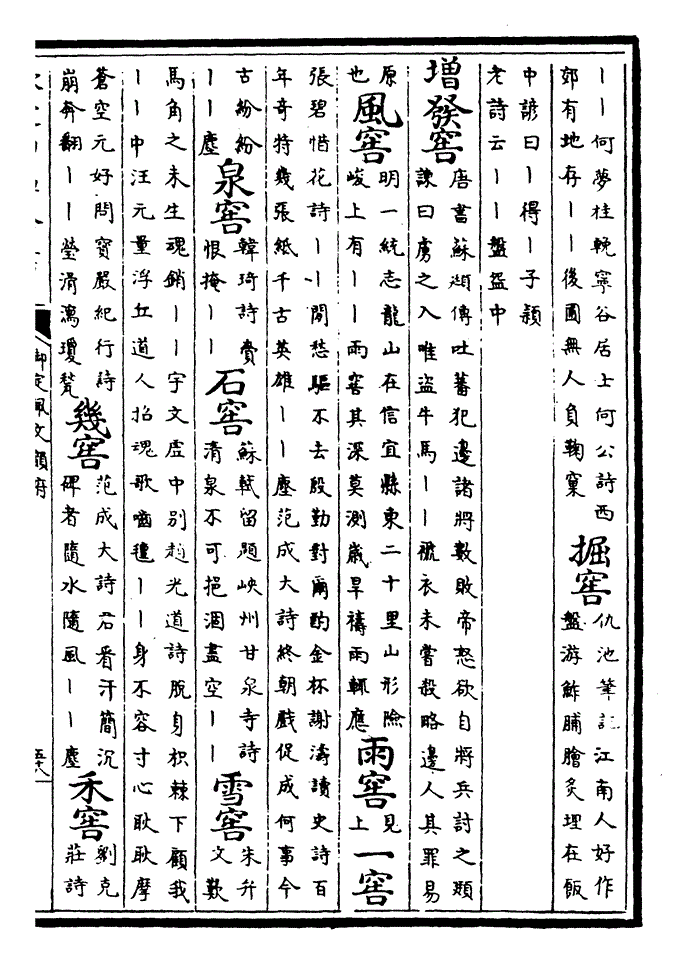 丨丨何夢桂輓寧谷居士何公詩西
郊有地存丨丨後園無人負鞠窠
掘窖
仇池筆記江南人好作
盤游鮓脯膾炙埋在飯
中諺曰丨得丨子潁
老詩云丨丨盤盌中
增發窖
唐書蘇頲傳吐蕃犯邊諸將數敗帝怒欲自將兵討之頲
諫曰虜之入唯盜牛馬丨丨毳衣未嘗殺略邊人其罪易
原
也
風窖
明一統志龍山在信宜縣東二十里山形險
峻上有丨丨雨窖其深莫測歲旱禱雨輒應
雨窖
見
上
一窖
張碧惜花詩丨丨閒愁驅不去殷勤對爾酌金杯謝濤讀史詩百
年奇特幾張紙千古英雄丨丨塵范成大詩終朝戲促成何事今
古紛紛
丨丨塵
泉窖
韓琦詩費
恨掩丨丨
石窖
蘇軾留題峽州甘泉寺詩
清泉不可挹涸盡空丨丨
雪窖
朱弁
文歎
馬角之未生魂銷丨丨宇文虛中別趙光道詩脫身枳棘下顧我
丨丨中汪元量浮丘道人招魂歌嚙氊丨丨身不容寸心耿耿摩
蒼空元好問寶嚴紀行詩
崩奔翻丨丨瑩滑瀉瓊甃
幾窖
范成大詩君看汗簡沉
碑者隨水隨風丨丨塵
禾窖
劉克
莊詩
御定佩文韻府